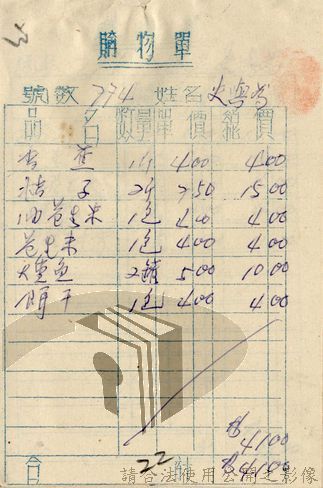 購物單
號數 774 姓名 史與為
品名 數量 單價 總價
香蕉 1斤 400 400
桔子 2斤 750 1500
油花生米 1包 400 400
花生米 1包 400 400
大魚 2罐 500 1000
餅干 1包 400 400
$4100
合 22 計 $4100
請合法使用公開之影像